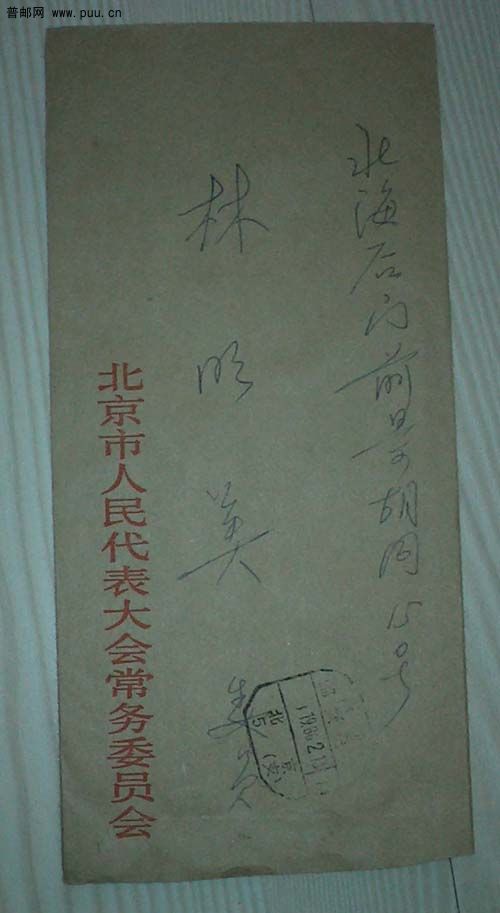 普邮网 www.puu.cn
北海后门前井胡同15号
林明美 委员
北京市人民代表大会常务委员会
1986.2.1
北京
5(支)